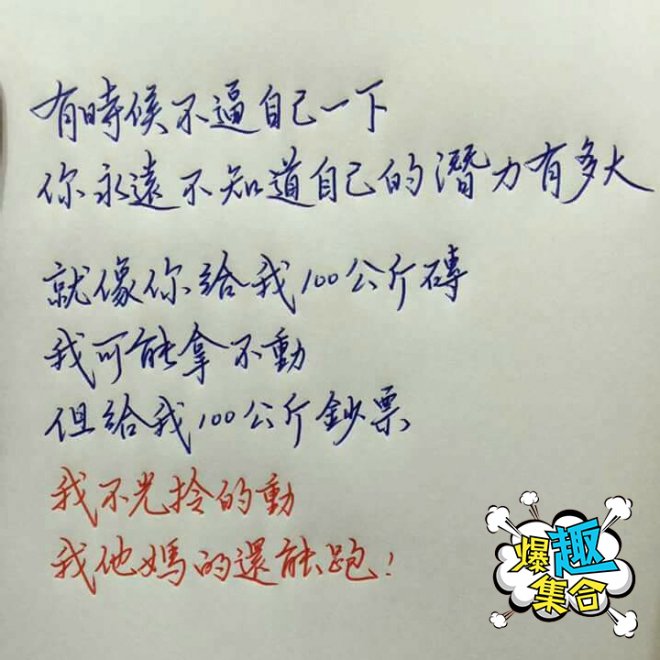 有時候不逼自己一下
你永遠不知道自己的潛力有多大
就像你給我100公斤磚
我可能拿不動
但給我100公斤鈔票
我不光拎的動
我他媽的還能跑!
爆趣
集合